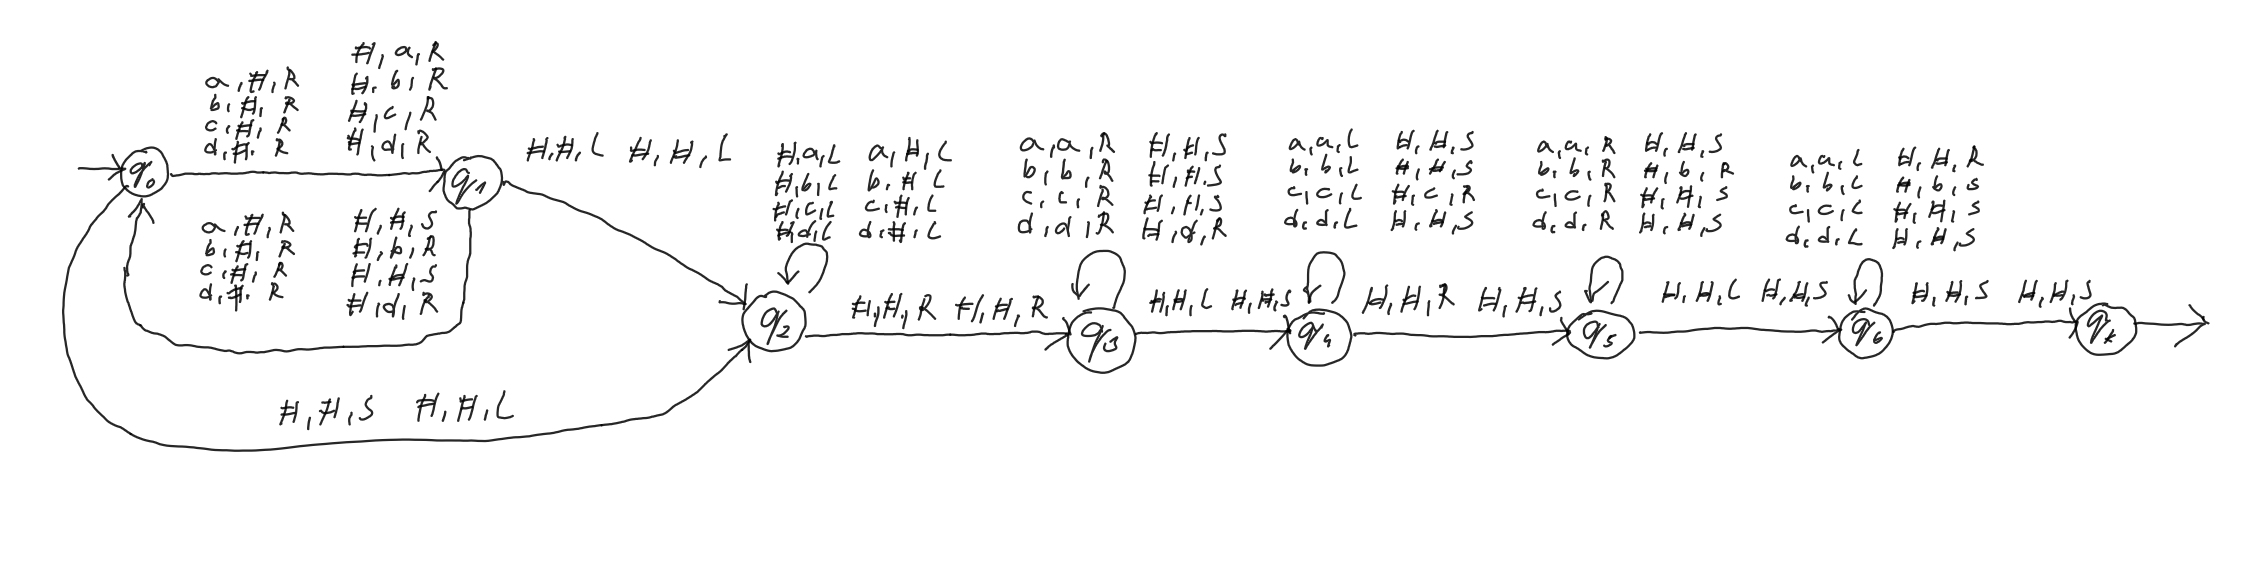 a,#,R #,a,R
b,#,R #,b,R
c,#,R #,c,R
d,#,R #,d,R
q0
q1
#,#,L #,#,L
a,#,R #,#,S
b,#,R #,b,R
c,#,R #,#,S
d,#,R #,d,R
#,#,S #,#,L
#,a,L a,#,L
#,b,L b,#,L
#,c,L c,#,L
#,d,L d,#,L
q2
#,#,R #,#,R
a,a,R #,#,S
b,b,R #,#,S
c,c,R #,#,S
d,d,R #,d,R
q3
#,#,L #,#,S
a,a,L #,#,S
b,b,L #,#,S
c,c,L #,c,R
d,d,L #,#,S
q4
#,#,R #,#,S
a,a,R #,#,S
b,b,R #,b,R
c,c,R #,#,S
d,d,R #,#,S
q5
#,#,L #,#,S
a,a,L #,#,R
b,b,L #,b,S
c,c,L #,#,S
d,d,L #,#,S
q6
#,#,S #,#,S